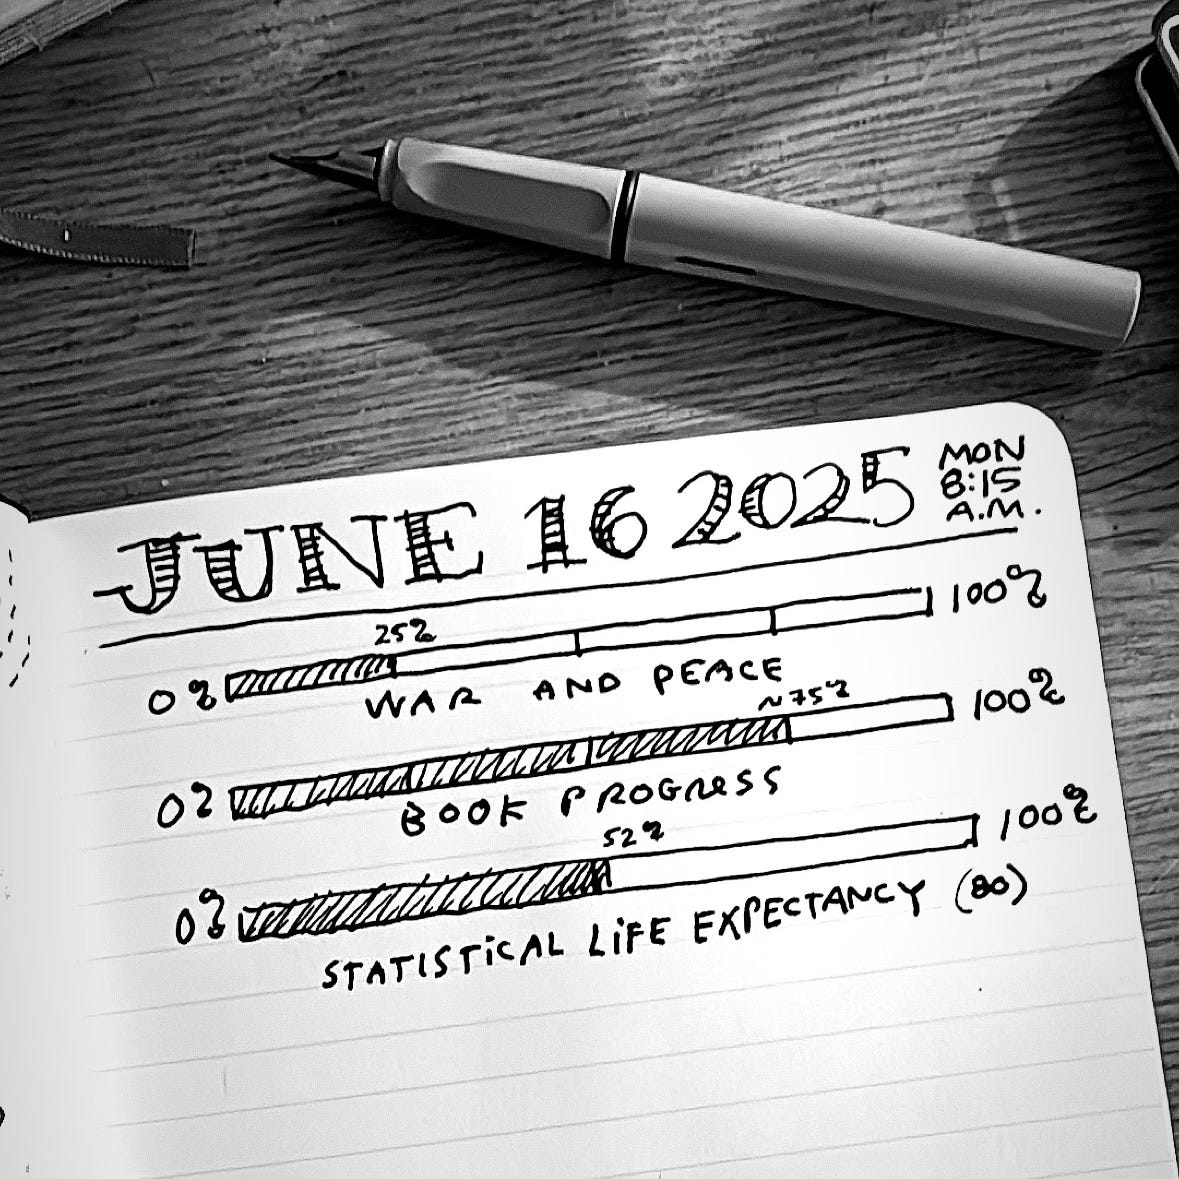 JUNE 16 2025
MON
8:15
A.M.
25%
0% 100%
WAR AND PEACE
~75%
0% 100%
BOOK PROGRESS
52%
0% 100%
STATISTICAL LIFE EXPECTANCY (80)